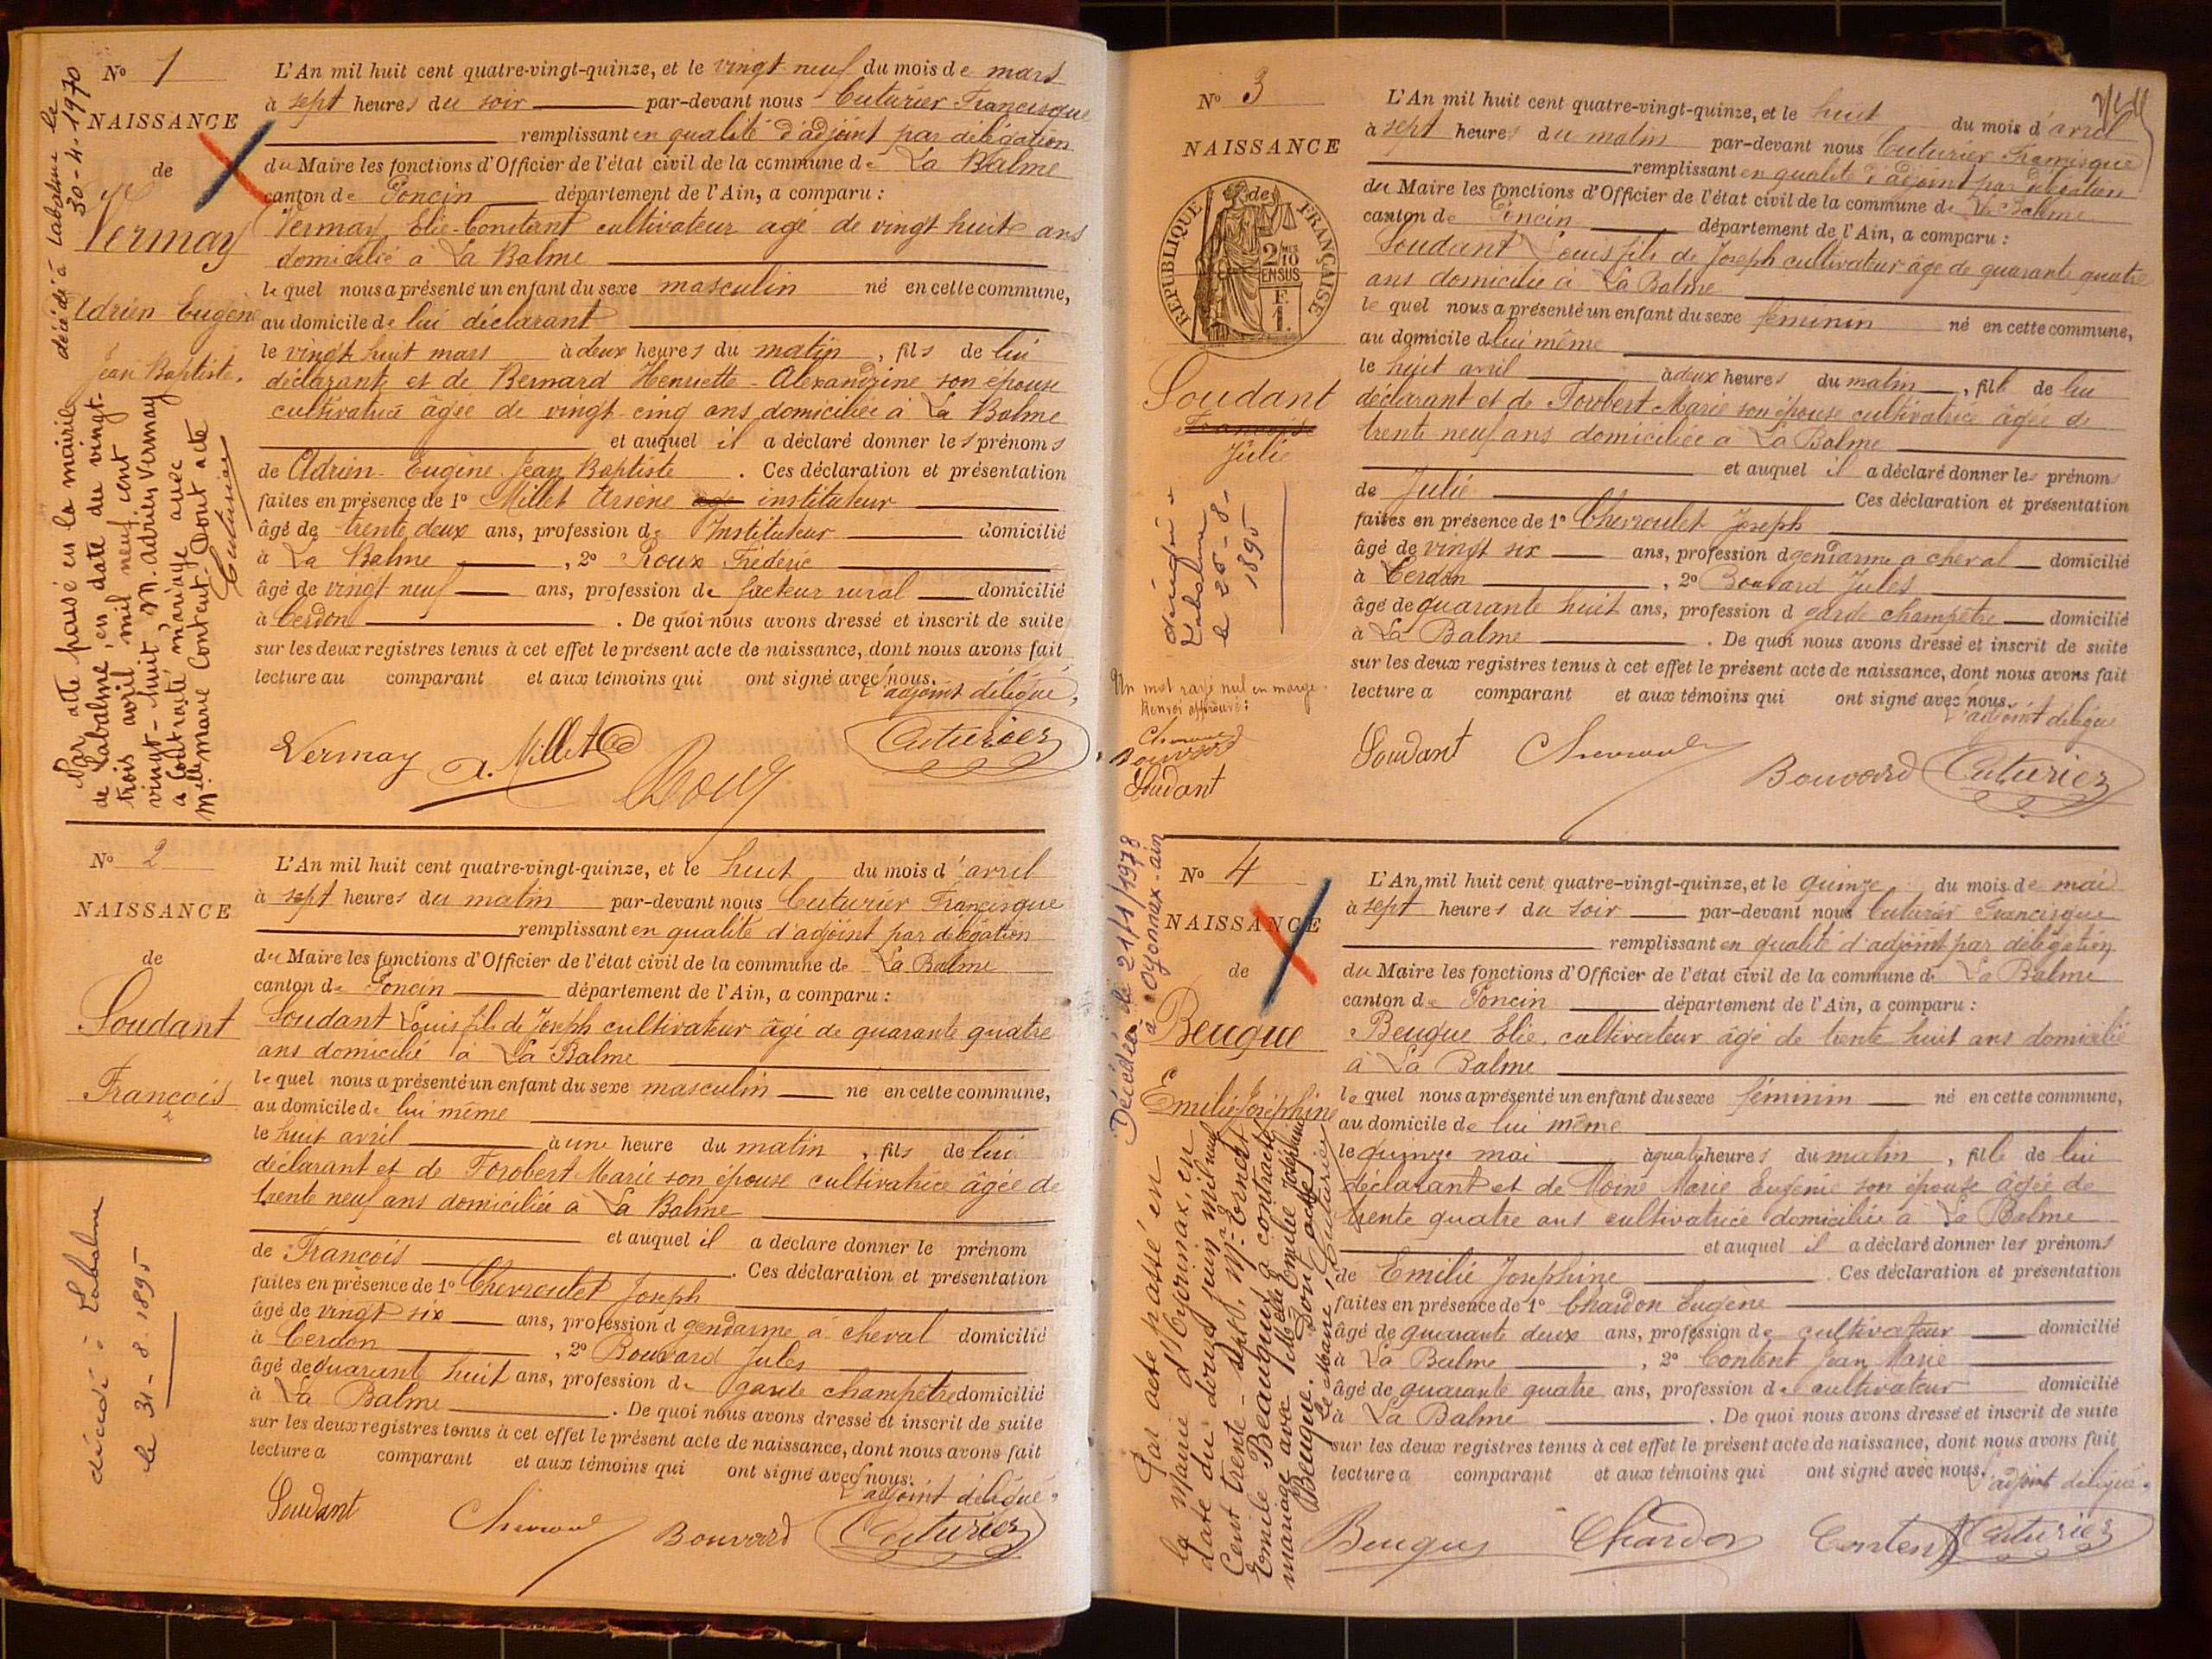 N° 1
NAISSANCE
de
Vermay
Adrien Eugène
Jean Baptiste.
décédé à Labalme le
30-4-1970
Par acte passé en la mairie
de Labalme, en date du vingt-
trois avril mil neuf cent
vingt-huit, M. Adrien Vermay
a contracté mariage avec
Melle Marie Content. Dont acte
Cuturier
L'An mil huit cent quatre-vingt-quinze, et le vingt neuf du mois de mars
à sept heures du soir par-devant nous Cuturier Francisque
remplissant en qualité d'adjoint par délégation
du Maire les fonctions d'Officier de l'état civil de la commune de La Balme
canton de Poncin département de l'Ain, a comparu :
Vermay Elie-Constant cultivateur agé de vingt huit ans
domicilié à La Balme
le quel nous a présenté un enfant du sexe masculin né en cette commune,
au domicile de lui déclarant
le vingt huit mars à deux heures du matin, fils de lui
déclarant et de Bernard Henriette-Alexandrine son épouse
cultivatrice âgée de vingt-cinq ans domiciliée à La Balme
et auquel il a déclaré donner les prénoms
de Adrien-Eugène Jean Baptiste. Ces déclaration et présentation
faites en présence de 1° Millet Arsène agé instituteur
âgé de trente deux ans, profession de Instituteur domicilié
à La Balme, 2° Roux Frédéric
âgé de vingt neuf ans, profession de facteur rural domicilié
à Cerdon. De quoi nous avons dressé et inscrit de suite
sur les deux registres tenus à cet effet le présent acte de naissance, dont nous avons fait
lecture au comparant et aux témoins qui ont signé avec nous.
L'adjoint délégué,
Vermay A. Millet Roux Cuturier
N° 2
NAISSANCE
de
Soudant
François
décédé à Labalme
le 31-8-1895
L'An mil huit cent quatre-vingt-quinze, et le huit du mois d'avril
à sept heures du matin par-devant nous Cuturier Francisque
remplissant en qualité d'adjoint par délégation
du Maire les fonctions d'Officier de l'état civil de la commune de La Balme
canton de Poncin département de l'Ain, a comparu :
Soudant Louis fils de Joseph cultivateur âgé de quarante quatre
ans domicilié à La Balme
le quel nous a présenté un enfant du sexe masculin né en cette commune,
au domicile de lui même
le huit avril à une heure du matin, fils de lui
déclarant et de Forobert Marie son épouse cultivatrice âgée de
trente neuf ans domiciliée à La Balme
et auquel il a déclaré donner le prénom
de François. Ces déclaration et présentation
faites en présence de 1° Chevroulet Joseph
âgé de vingt six ans, profession d gendarme à cheval domicilié
à Cerdon, 2° Bouvard Jules
âgé de quarante huit ans, profession de garde champêtre domicilié
à La Balme. De quoi nous avons dressé et inscrit de suite
sur les deux registres tenus à cet effet le présent acte de naissance, dont nous avons fait
lecture a comparant et aux témoins qui ont signé avec nous.
L'adjoint délégué,
Soudant Bouvard Cuturier
N° 3
NAISSANCE
de
REPUBLIQUE FRANÇAISE
2/10 EN SUS
F.
1.
Soudant
François
Julie
décédée à
Labalme
le 25-8-
1895
Un mot rayé nul en marge.
Renvoi approuvé:
Bouvard
Soudant
L'An mil huit cent quatre-vingt-quinze, et le huit du mois d'avril
à sept heures du matin par-devant nous Cuturier Francisque
remplissant en qualité d'adjoint par délégation
du Maire les fonctions d'Officier de l'état civil de la commune de La Balme
canton de Poncin département de l'Ain, a comparu :
Soudant Louis fils de Joseph cultivateur âgé de quarante quatre
ans domicilié à La Balme
le quel nous a présenté un enfant du sexe féminin né en cette commune,
au domicile d lui même
le huit avril à deux heures du matin, fille de lui
déclarant et de Forobert Marie son épouse cultivatrice âgée de
trente neuf ans domiciliée à La Balme
et auquel il a déclaré donner le prénom
de Julie Ces déclaration et présentation
faites en présence de 1° Chevroulet Joseph
âgé de vingt six ans, profession d gendarme a cheval domicilié
à Cerdon, 2° Bouvard Jules
âgé de quarante huit ans, profession d garde champêtre domicilié
à La Balme. De quoi nous avons dressé et inscrit de suite
sur les deux registres tenus à cet effet le présent acte de naissance, dont nous avons fait
lecture a comparant et aux témoins qui ont signé avec nous.
L'adjoint délégué
Soudant Bouvard Cuturier
N° 4
NAISSANCE
de
Beuque
Emilie Joséphine
Décédée le 21/1/1978
à Oyonnax-ain
Par acte passé en
la Mairie d'Oyonnax, en
date du douze juin mil neuf
Cent trente-sept, Mr Ernest
Emile Beauquis a contracté
mariage avec Melle Emilie Joséphine
Beuque. Dont acte,
Le Maire, Cuturier
L'An mil huit cent quatre-vingt-quinze, et le quinze du mois de mai
à sept heures du soir par-devant nous Cuturier Francisque
remplissant en qualité d'adjoint par délégation
du Maire les fonctions d'Officier de l'état civil de la commune de La Balme
canton de Poncin département de l'Ain, a comparu :
Beuque Elie, cultivateur âgé de trente huit ans domicilié
à La Balme
le quel nous a présenté un enfant du sexe féminin né en cette commune,
au domicile de lui même
le quinze mai à quatre heures du matin, fille de lui
déclarant et de Moine Marie Eugénie son épouse âgée de
trente quatre ans cultivatrice domiciliée à La Balme
et auquel il a déclaré donner les prénoms
de Emilie Joséphine. Ces déclaration et présentation
faites en présence de 1° Chardon Eugène
âgé de quarante deux ans, profession de cultivateur domicilié
à La Balme, 2° Content Jean Marie
âgé de quarante quatre ans, profession de cultivateur domicilié
à La Balme. De quoi nous avons dressé et inscrit de suite
sur les deux registres tenus à cet effet le présent acte de naissance, dont nous avons fait
lecture a comparant et aux témoins qui ont signé avec nous.
L'adjoint délégué.
Beuque Chardon Content Cuturier